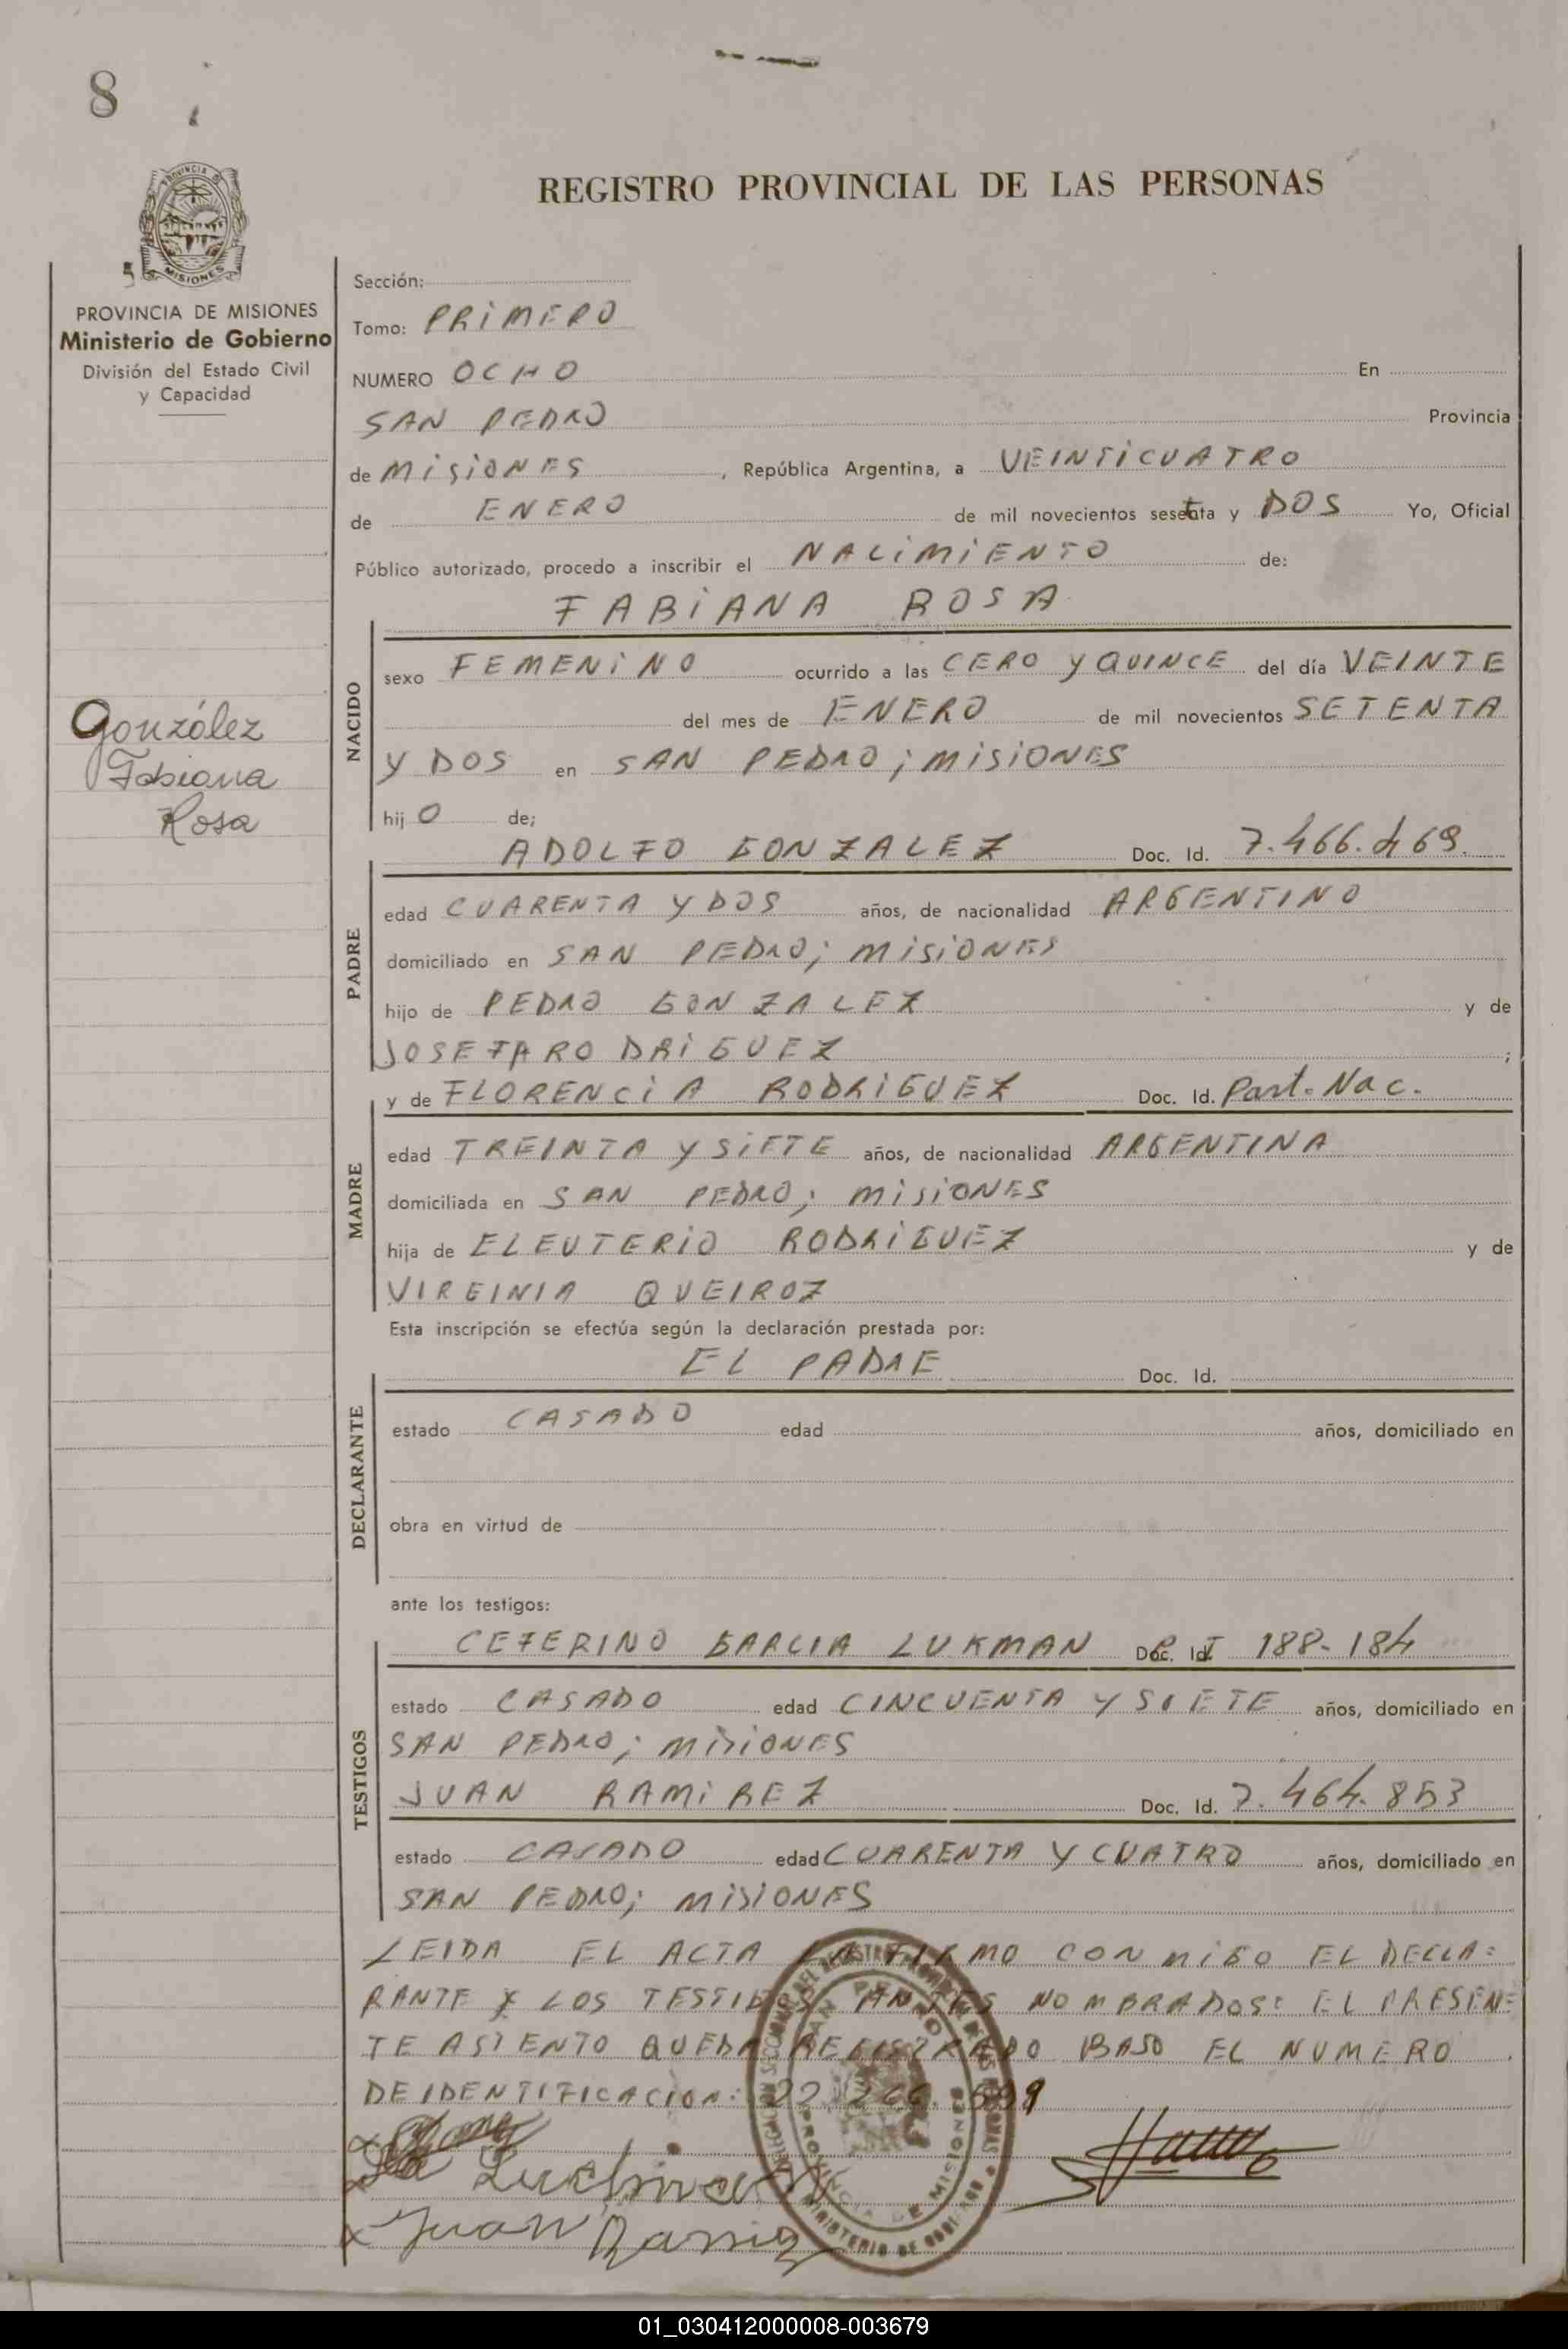 8
REGISTRO PROVINCIAL DE LAS PERSONAS
PROVINCIA DE MISIONES
Ministerio de Gobierno
División del Estado Civil
y Capacidad
González
Fabiana
Rosa
Sección:
Tomo: PRIMERO
NUMERO OCHO En
SAN PEDRO Provincia
de MISIONES, República Argentina, a VEINTICUATRO
de ENERO de mil novecientos setenta y DOS Yo, Oficial
Público autorizado, procedo a inscribir el NACIMIENTO de:
FABIANA ROSA
NACIDO
sexo FEMENINO ocurrido a las CERO Y QUINCE del día VEINTE
del mes de ENERO de mil novecientos SETENTA
Y DOS en SAN PEDRO; MISIONES
hijO de;
ADOLFO GONZALEZ Doc. Id. 7.466.469.
PADRE
edad CUARENTA Y DOS años, de nacionalidad ARGENTINO
domiciliado en SAN PEDRO; MISIONES
hijo de PEDRO GONZALEZ y de
JOSEFA RODRIGUEZ ;
y de FLORENCIA RODRIGUEZ Doc. Id. Part. Nac.
MADRE
edad TREINTA Y SIETE años, de nacionalidad ARGENTINA
domiciliada en SAN PEDRO; MISIONES
hija de ELEUTERIO RODRIGUEZ y de
VIRGINIA QUEIROZ
Esta inscripción se efectúa según la declaración prestada por:
EL PADRE Doc. Id.
DECLARANTE
estado CASADO edad años, domiciliado en
obra en virtud de
ante los testigos:
CEFERINO GARCIA LUKMAN Doc. Id. 188-184
TESTIGOS
estado CASADO edad CINCUENTA Y SIETE años, domiciliado en
SAN PEDRO; MISIONES
JUAN RAMIREZ Doc. Id. 7.464.853
estado CASADO edad CUARENTA Y CUATRO años, domiciliado en
SAN PEDRO; MISIONES
LEIDA EL ACTA LA FIRMO CON MIGO EL DECLA=
RANTE Y LOS TESTIGOS ANTES NOMBRADOS: EL PRESEN=
TE ASIENTO QUEDA REGISTRADO BAJO EL NUMERO
DE IDENTIFICACION:
SAN PEDRO
PROVINCIA DE MISIONES
MINISTERIO DE GOBIERNO
Juan Ramirez
01_030412000008-003679